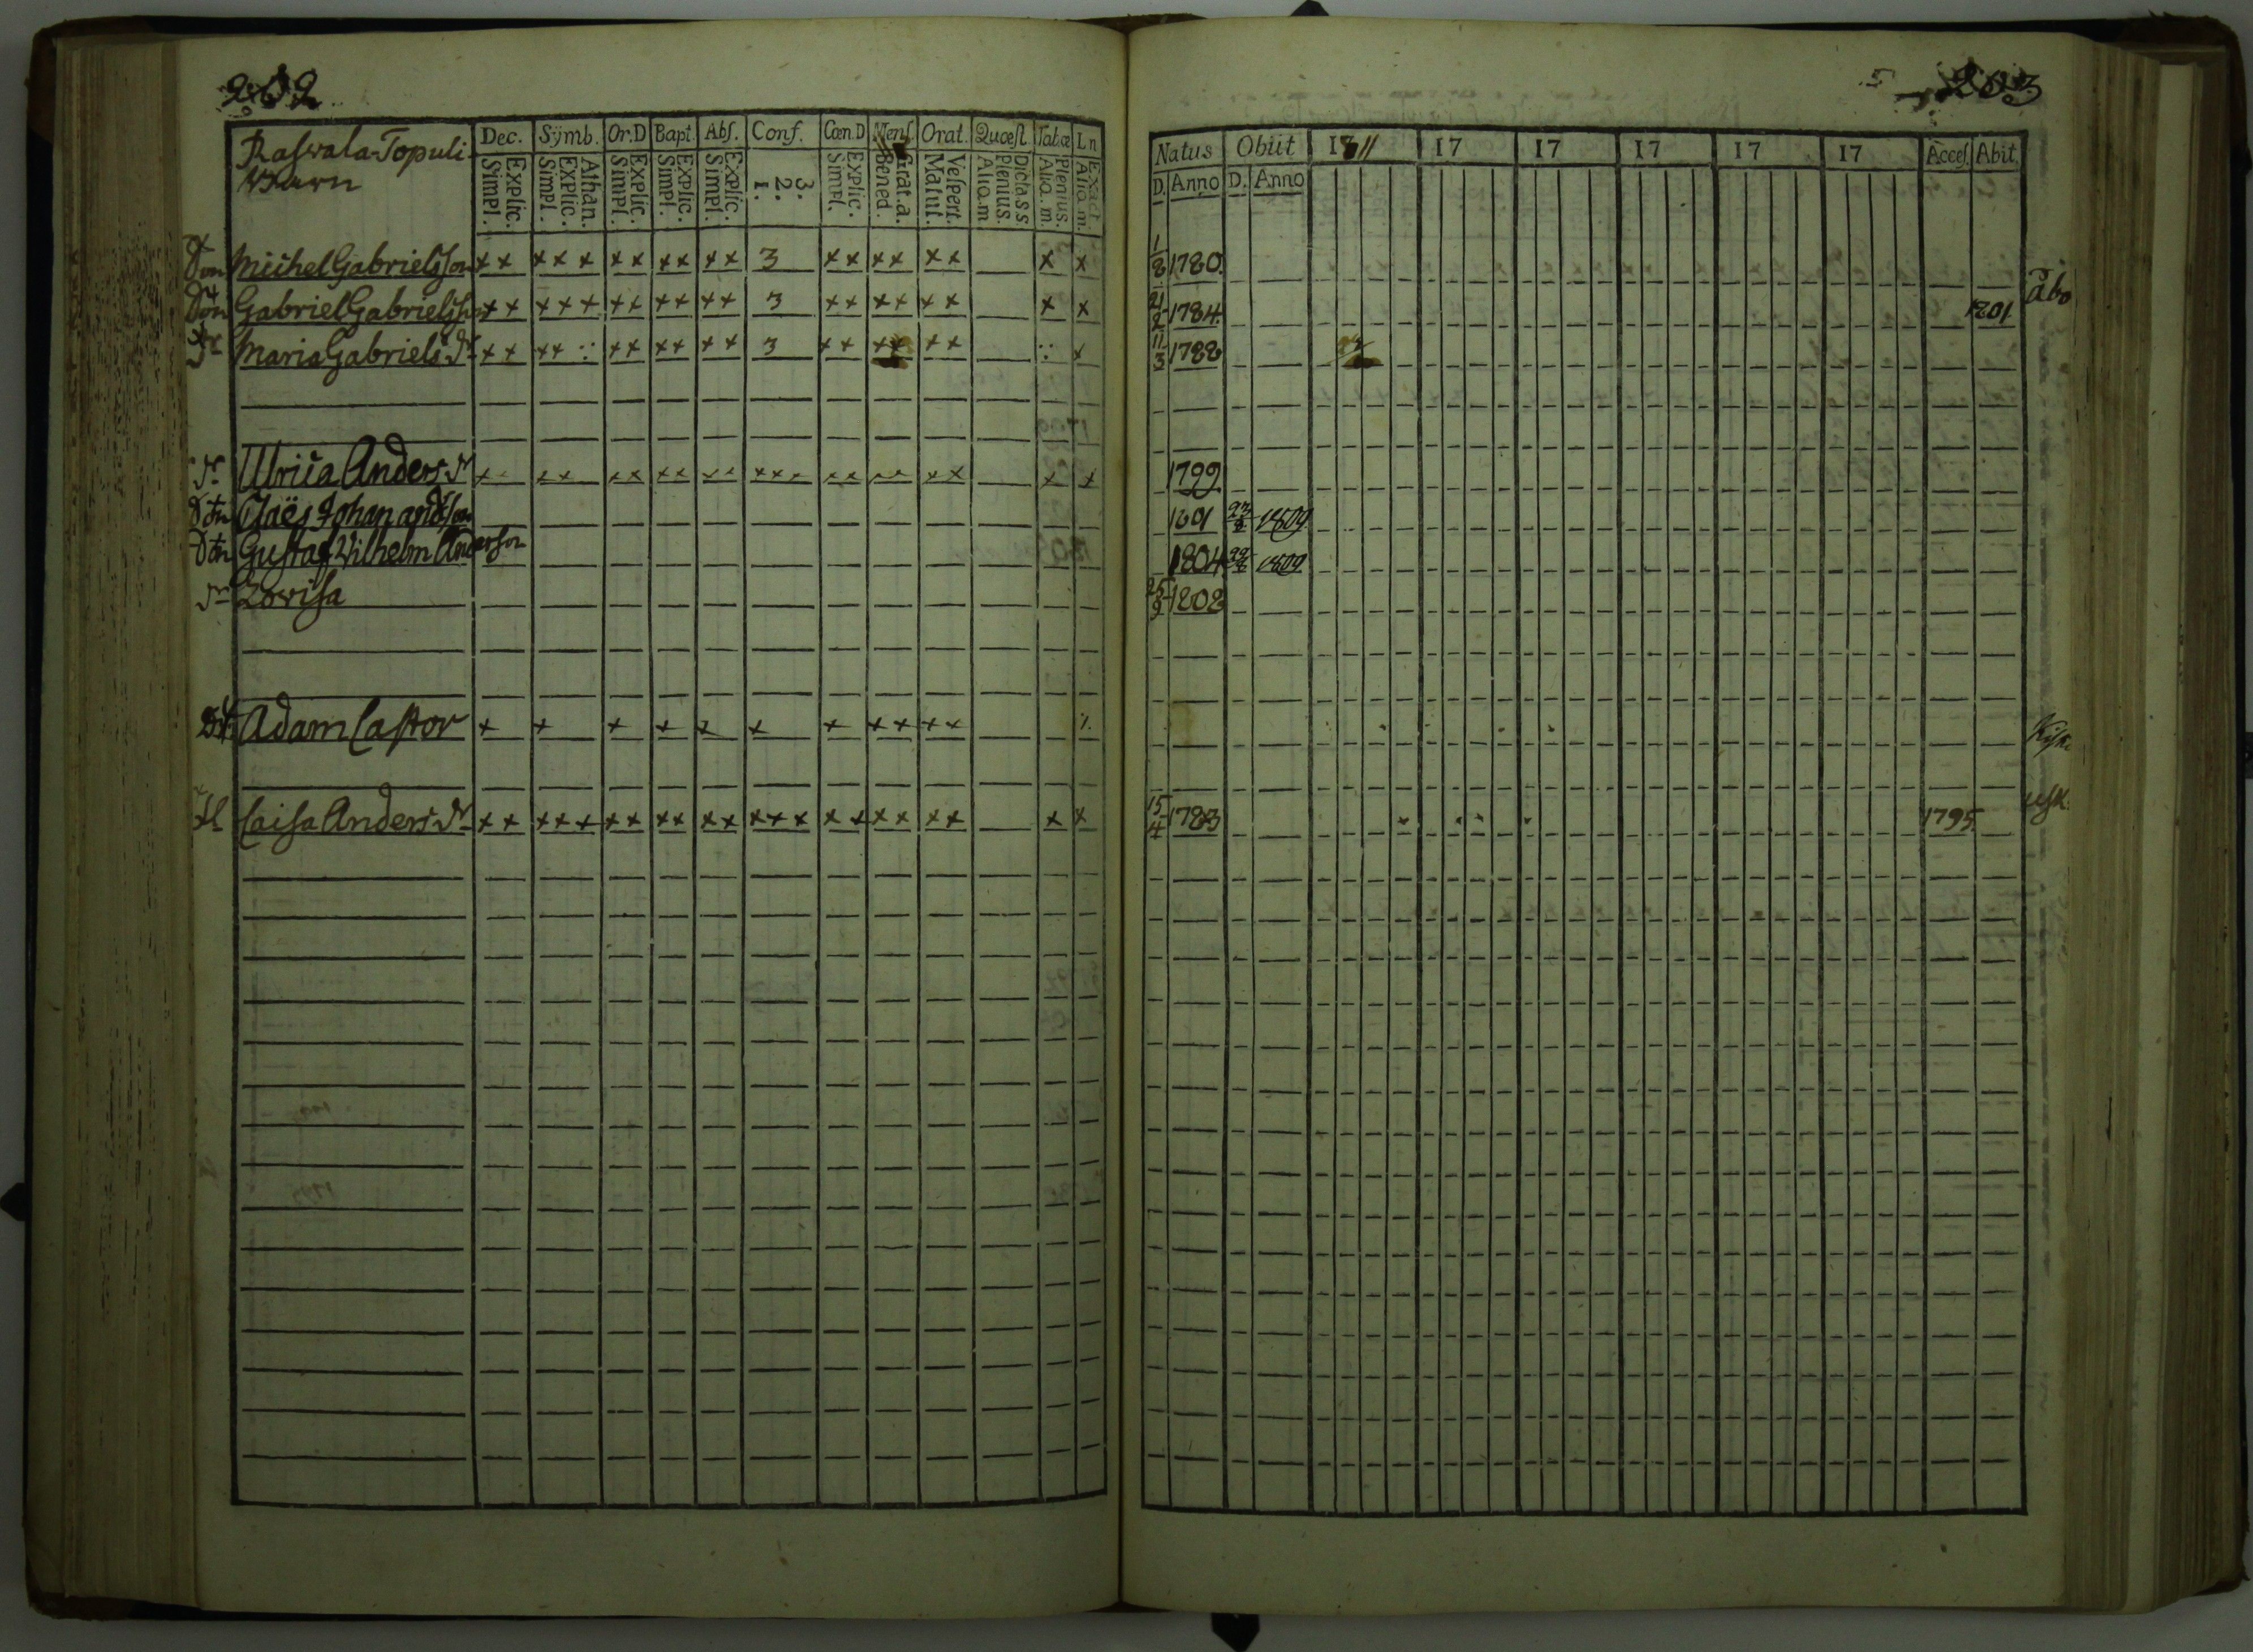 202
Raswala-Topuli-
Dec. Symb. Or.D Bapt. Abſ. Conf. Cœn.D Menſ. Orat. Quœſt. Tab.œ Ln
Explic. Simpl. Athan. Explic. Simpl. Explic. Simpl. Explic. Simpl. Explic. Simpl. 3. 2. 1. Explic. Simpl. Grat.a. Bened. Veſpert. Matut. Dicta.s.s Plenius. Aliq.m Plenius. Aliq.m. Exact Aliq.m.
Don Michel Gabrielsſon ×× ××× ×× ×× ×× 3 ×× ×× ×× × ×
Don Gabriel Gabrielsſon ×× ××× ×× ×× ×× 3 ×× ×× ×× × ×
Dr Maria Gabriels Dr ×× ×× ∵ ×× ×× ×× 3 ×× ×× ×× ∵ ×
Dr Ulrica Anders Dr ×× ×× ×× ×× ×× ××× ×× ×× ×× × ×
Don Claës Johan andsſon
Don Gustaf Wilhelm Anderſon
Dr Lowisa
Adam Castor × × × × × × × ×× ××
Caisa Anders Dr ×× ××× ×× ×× ×× ××× ×× ×× ×× × ×
203
Natus Obiit 1811 17 17 17 17 17 Acceſ. Abit.
D. Anno D. Anno
1/8 1780.
21/2 1784. 1801 åbo
11/3 1788
1799
1801 23/2 1809
1804 22/2 1809
25/9 1808
15/4 1783 1795.